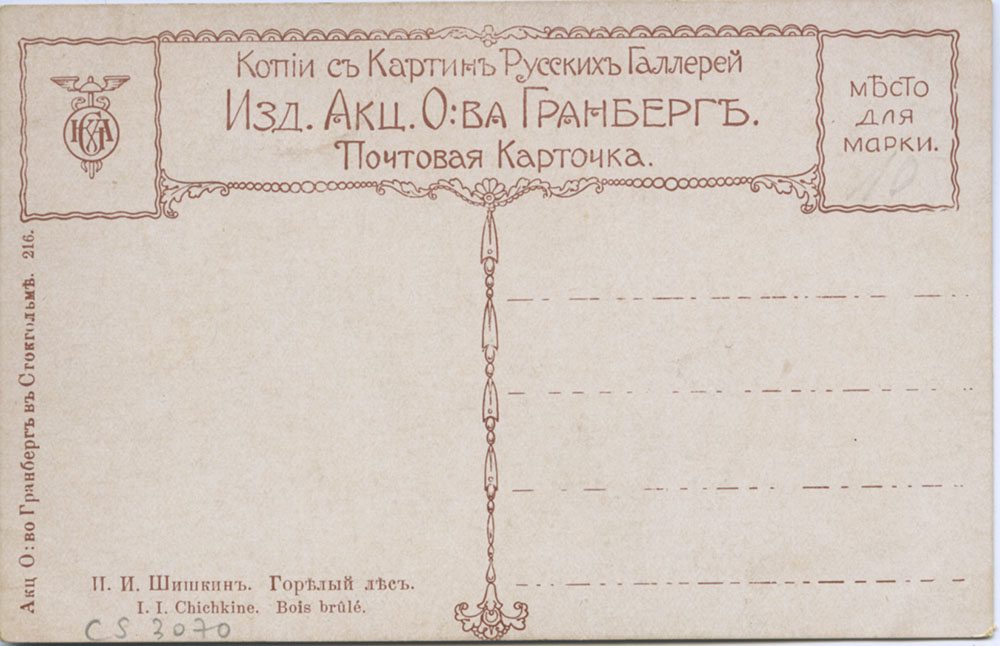 Копіи съ Картинъ Русскихъ Галлерей
Изд. Акц. О:ва Гранбергъ.
Почтовая Карточка.
Мѣсто
для
марки.
Акц О:во Гранбергъ въ Стокгольмѣ. 216.
И. И. Шишкинъ. Горѣлый лѣсъ.
I. I. Chichkine. Bois brûlé.
CS 3070